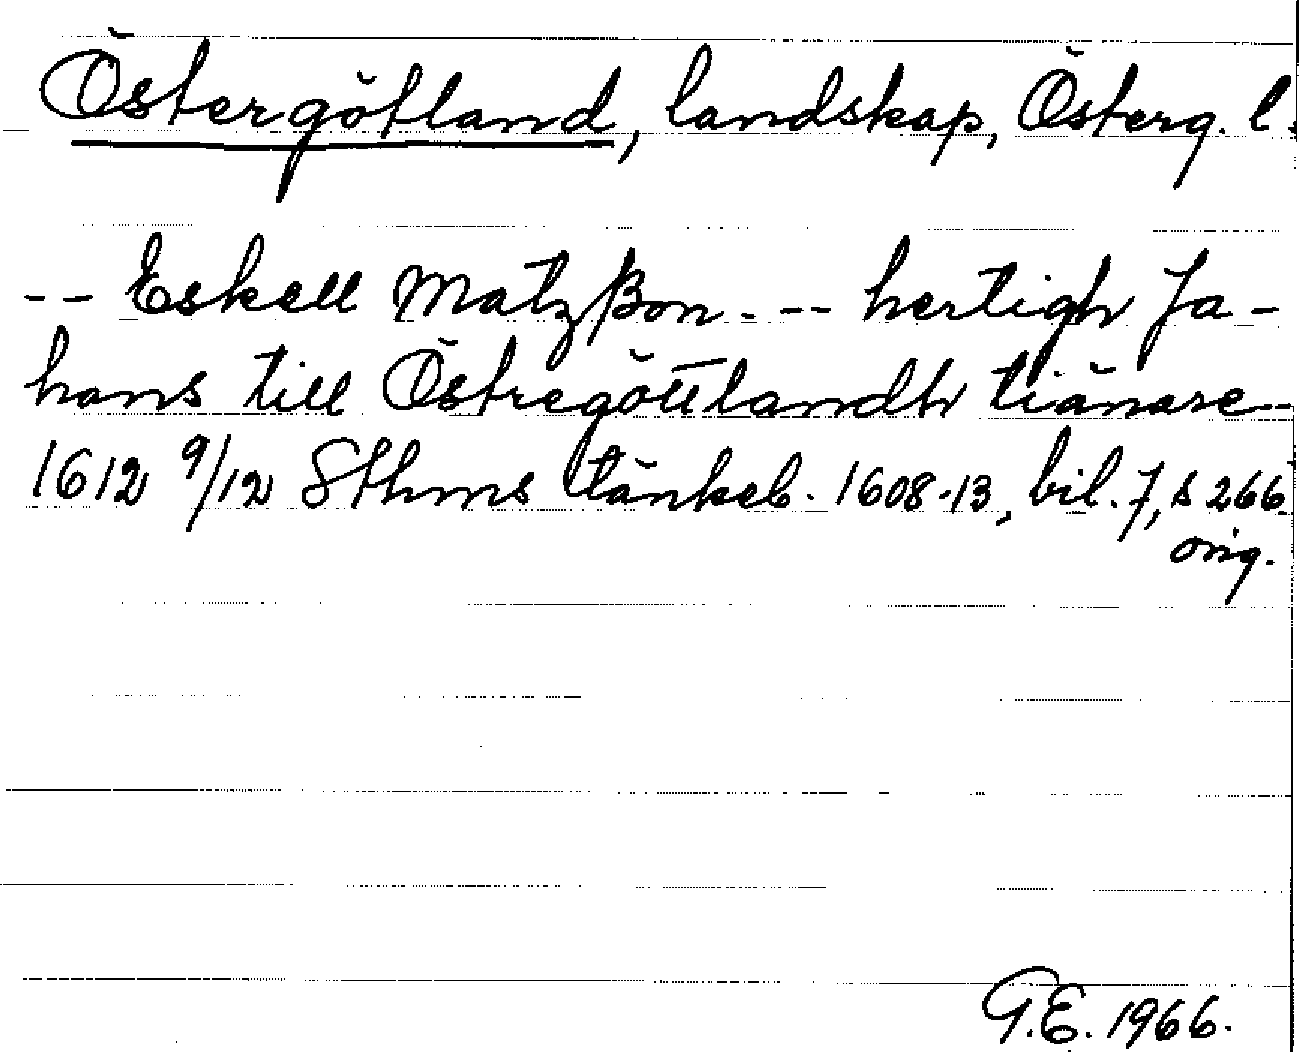 Östergötland, landskap, Österg. l.
-- Eskell Matzßon. -- hertigh Ja-
hans till Östregöttlandh tiänare
1612 9/12 Sthms tänkeb. 1608-13, bil. 7, s 266
orig.
G.E. 1966.